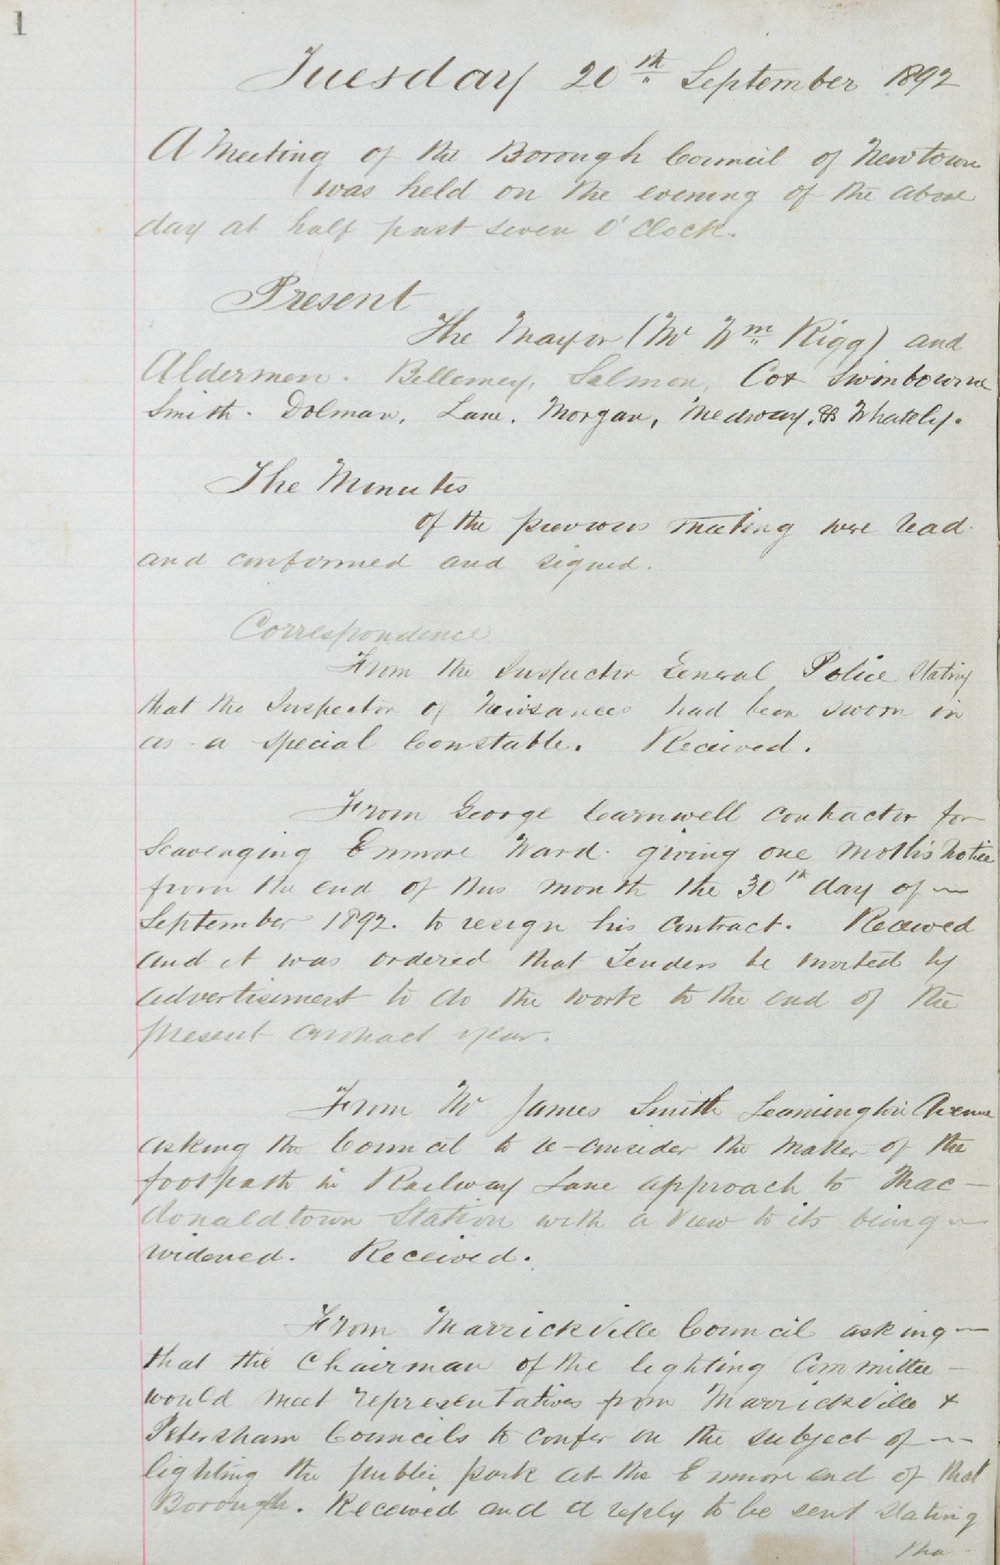 1
Tuesday 20th September 1892
A Meeting of the Borough Council of Newtown
was held on the evening of the above
day at half past seven O'Clock.
Present
The Mayor (Mr Wm Rigg) and
Aldermen. Bellemey, Salmon, Cox Swinbourne
Smith. Dolman, Lane. Morgan, Medway, & Whately.
The Minutes
of the previous meeting were read
and confirmed and signed.
Correspondence
From the Inspector General Police stating
that the Inspector of Nuisances had been sworn in
as a special Constable. Received.
From George Carnwell contractor for
Scavenging Enmore Ward. giving one moths notice
from the end of this month the 30th day of —
September 1892. to resign his contract. Received
and it was ordered that Tenders be invited by
advertisement to do the work to the end of the
present contract year.
From Mr James Smith Leamington Avenue
asking the Council to re-consider the matter of the
footpath in Railway Lane approach to Mac-
donaldtown Station with a view to its being —
widened. Received.
From Marrickville Council asking —
that the Chairman of the lighting Committee —
would meet representatives from Marrickville &
Petersham Councils to confer on the subject of —
lighting the public park at the Enmore end of that
Borough. Received and a reply to be sent stating
tha